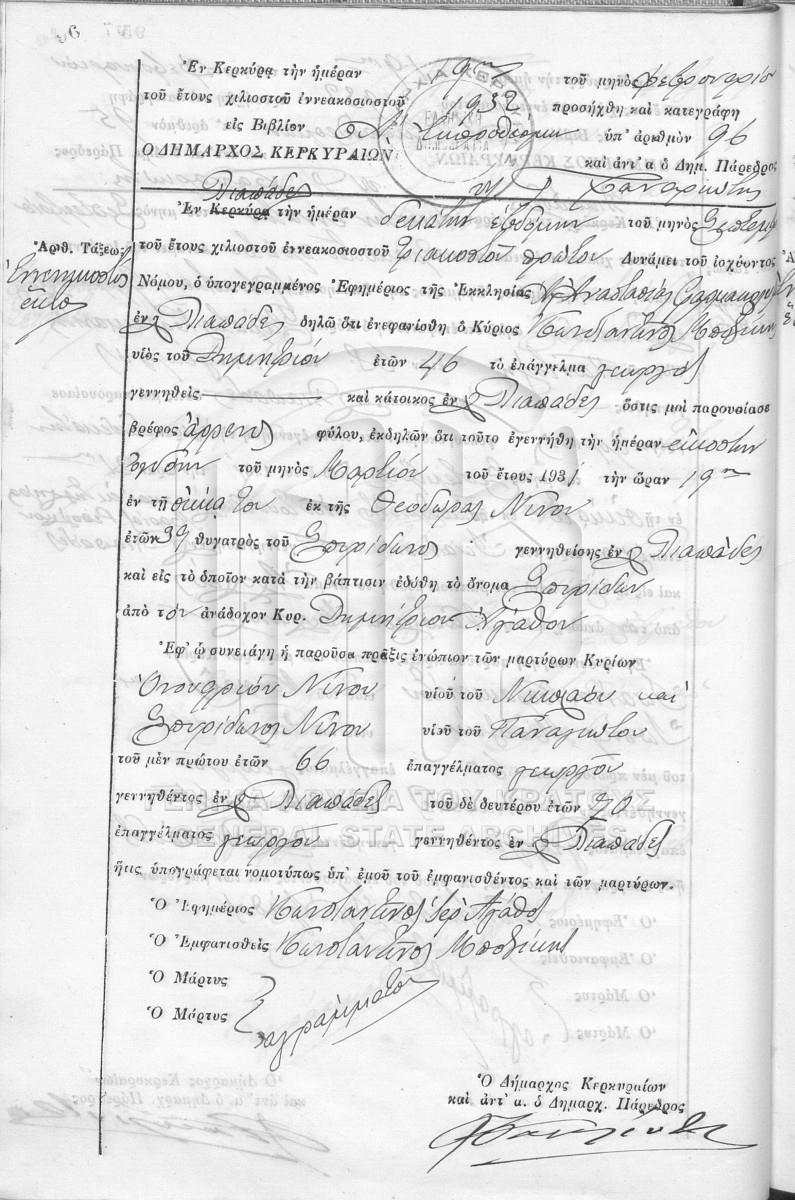 96
Ἐν Κερκύρᾳ τὴν ἡμέραν 9ην τοῦ μηνὸς Φεβρουαρίου
τοῦ ἔτους χιλιοστοῦ ἐννεακοσιοστοῦ 1932, προσήχθη καὶ κατεγράφη
εἰς Βιβλίον ὑπ' ἀριθμὸν 96
Ο ΔΗΜΑΡΧΟΣ ΚΕΡΚΥΡΑΙΩΝ καὶ ἀντ' α ὁ Δημ. Πάρεδρος
Λιαπάδες
Ἐν Κερκύρᾳ τὴν ἡμέραν δεκάτην ἑβδόμην τοῦ μηνὸς Σεπτεμβ
Ἀριθ. Τάξεως
Ἐννενηκοστὸς
ἕκτος
τοῦ ἔτους χιλιοστοῦ ἐννεακοσιοστοῦ τριακοστοῦ πρώτου Δυνάμει τοῦ ἰσχύοντος
Νόμου, ὁ ὑπογεγραμμένος Ἐφημέριος τῆς Ἐκκλησίας Ἀναστασίας
ἐν Λιαπάδες δηλῶ ὅτι ἐνεφανίσθη ὁ Κύριος Κωνσταντῖνος Μποζίκης
υἱὸς τοῦ Δημητρίου ἐτῶν 46 τὸ ἐπάγγελμα γεωργὸς
γεννηθεὶς καὶ κάτοικος ἐν Λιαπάδες ὅστις μοὶ παρουσίασε
βρέφος ἄρρενος φύλου, ἐκδηλῶν ὅτι τοῦτο ἐγεννήθη τὴν ἡμέραν εἰκοστὴν
ὀγδόην τοῦ μηνὸς Μαρτίου τοῦ ἔτους 1931 τὴν ὥραν 19ην
ἐν τῇ οἰκίᾳ του ἐκ τῆς Θεοδώρας Νίνου
ἐτῶν 39 θυγατρὸς τοῦ Σπυρίδωνος γεννηθείσης ἐν Λιαπάδες
καὶ εἰς τὸ ὁποῖον κατὰ τὴν βάπτισιν ἐδόθη τὸ ὄνομα Σπυρίδων
ἀπὸ τὸν ἀνάδοχον Κυρ. Δημήτριον Ἀγάθον
Ἐφ' ᾧ συνετάγη ἡ παροῦσα πρᾶξις ἐνώπιον τῶν μαρτύρων Κυρίων
Ὀνουφρίου Νίνου υἱοῦ τοῦ Νικολάου καὶ
Σπυρίδωνος Νίνου υἱοῦ τοῦ Παναγιώτου
τοῦ μὲν πρώτου ἐτῶν 66 ἐπαγγέλματος γεωργοῦ
γεννηθέντος ἐν Λιαπάδες τοῦ δὲ δευτέρου ἐτῶν 70
ΓΕΝΙΚΑ ΑΡΧΕΙΑ ΤΟΥ ΚΡΑΤΟΥΣ
GENERAL STATE ARCHIVES
ἐπαγγέλματος γεωργοῦ γεννηθέντος ἐν Λιαπάδες
ἥτις ὑπογράφεται νομοτύπως ὑπ' ἐμοῦ τοῦ ἐμφανισθέντος καὶ τῶν μαρτύρων.
Ὁ Ἐφημέριος Κωνσταντῖνος Ἱερ. Ἀγάθος
Ὁ Ἐμφανισθεὶς Κωνσταντῖνος Μποζίκης
Ὁ Μάρτυς
Ὁ Μάρτυς ἀγράμματοι
Ὁ Δήμαρχος Κερκυραίων
καὶ ἀντ' α. ὁ Δημαρχ. Πάρεδρος